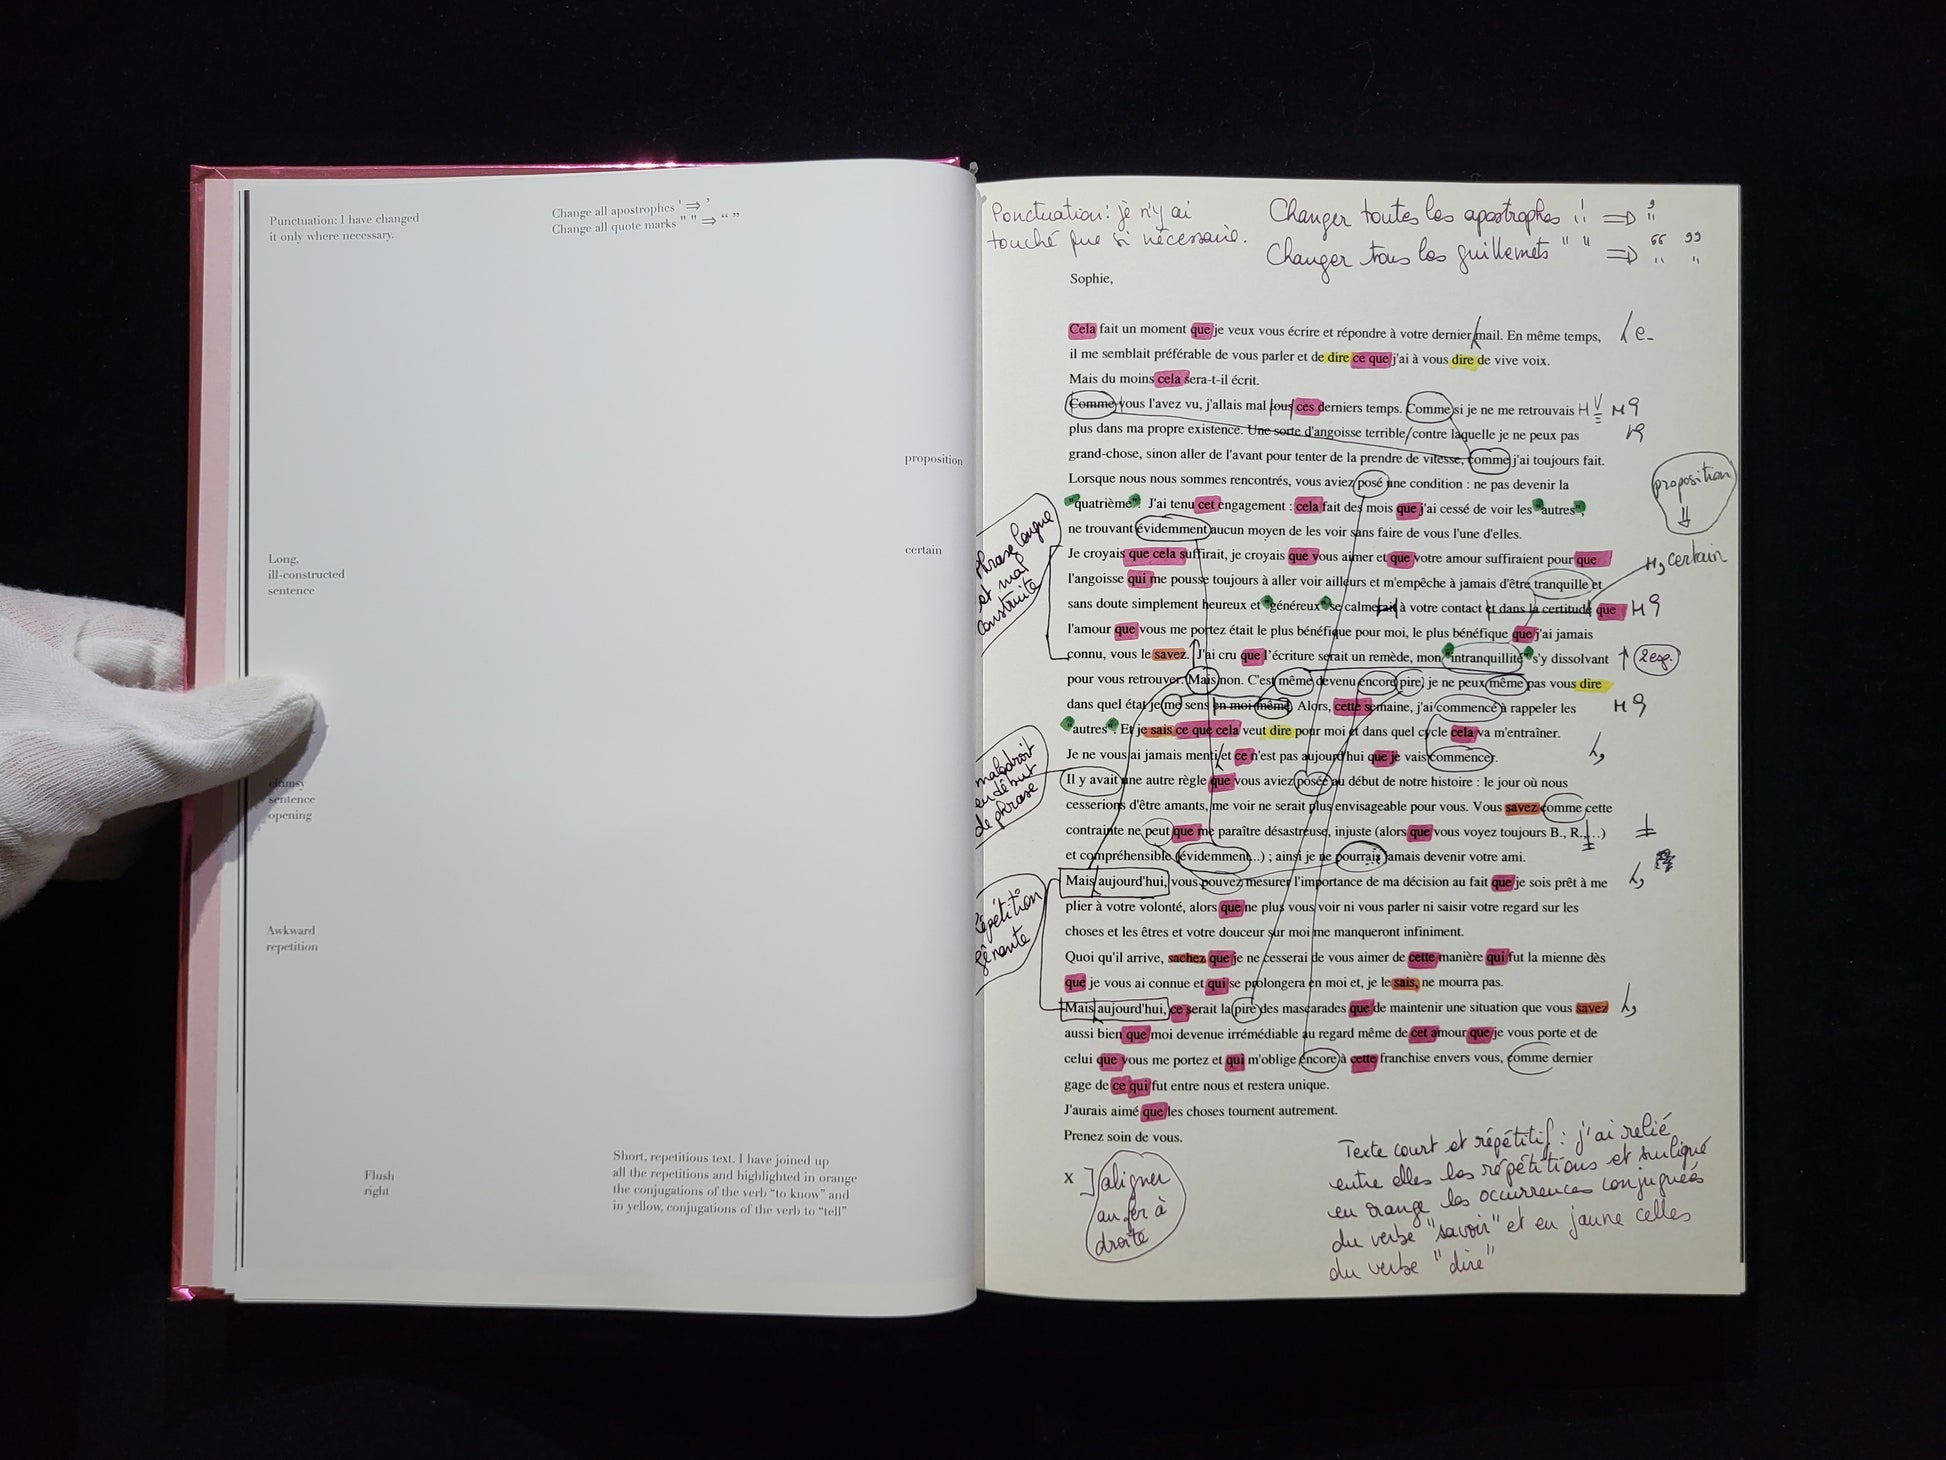 Punctuation: I have changed
it only where necessary.
Change all apostrophes ' ⇒ ’
Change all quote marks " " ⇒ “ ”
proposition
certain
Long,
ill-constructed
sentence
clumsy
sentence
opening
Awkward
repetition
Flush
right
Short, repetitious text. I have joined up
all the repetitions and highlighted in orange
the conjugations of the verb “to know” and
in yellow, conjugations of the verb to “tell”
Ponctuation: je n'y ai
touché que si nécessaire.
Changer toutes les apostrophes ' ⇒ ’
Changer tous les guillemets " " ⇒ “ ”
Sophie,
Cela fait un moment que je veux vous écrire et répondre à votre dernier mail. En même temps, e-
il me semblait préférable de vous parler et de dire ce que j'ai à vous dire de vive voix.
Mais du moins cela sera-t-il écrit.
Comme vous l'avez vu, j'allais mal tous ces derniers temps. Comme si je ne me retrouvais
plus dans ma propre existence. Une sorte d'angoisse terrible contre laquelle je ne peux pas
grand-chose, sinon aller de l'avant pour tenter de la prendre de vitesse, comme j'ai toujours fait.
Lorsque nous nous sommes rencontrés, vous aviez posé une condition : ne pas devenir la
"quatrième". J'ai tenu cet engagement : cela fait des mois que j'ai cessé de voir les "autres",
ne trouvant évidemment aucun moyen de les voir sans faire de vous l'une d'elles.
Je croyais que cela suffirait, je croyais que vous aimer et que votre amour suffiraient pour que
l'angoisse qui me pousse toujours à aller voir ailleurs et m'empêche à jamais d'être tranquille et
sans doute simplement heureux et "généreux" se calmerait à votre contact et dans la certitude que
l'amour que vous me portez était le plus bénéfique pour moi, le plus bénéfique que j'ai jamais
connu, vous le savez. J'ai cru que l'écriture serait un remède, mon "intranquillité" s'y dissolvant
pour vous retrouver. Mais non. C'est même devenu encore pire, je ne peux même pas vous dire
dans quel état je me sens en moi-même. Alors, cette semaine, j'ai commencé à rappeler les
"autres". Et je sais ce que cela veut dire pour moi et dans quel cycle cela va m'entraîner.
Je ne vous ai jamais menti et ce n'est pas aujourd'hui que je vais commencer.
Il y avait une autre règle que vous aviez posée au début de notre histoire : le jour où nous
cesserions d'être amants, me voir ne serait plus envisageable pour vous. Vous savez comme cette
contrainte ne peut que me paraître désastreuse, injuste (alors que vous voyez toujours B., R.,...)
et compréhensible (évidemment...) ; ainsi je ne pourrais jamais devenir votre ami.
Mais aujourd'hui, vous pouvez mesurer l'importance de ma décision au fait que je sois prêt à me
plier à votre volonté, alors que ne plus vous voir ni vous parler ni saisir votre regard sur les
choses et les êtres et votre douceur sur moi me manqueront infiniment.
Quoi qu'il arrive, sachez que je ne cesserai de vous aimer de cette manière qui fut la mienne dès
que je vous ai connue et qui se prolongera en moi et, je le sais, ne mourra pas.
Mais aujourd'hui, ce serait la pire des mascarades que de maintenir une situation que vous savez
aussi bien que moi devenue irrémédiable au regard même de cet amour que je vous porte et de
celui que vous me portez et qui m'oblige encore à cette franchise envers vous, comme dernier
gage de ce qui fut entre nous et restera unique.
J'aurais aimé que les choses tournent autrement.
Prenez soin de vous.
X
proposition
certain
phrase longue
et mal
construite
2 esp.
maladroit
en début
de phrase
Répétition
gênante
aligner
au fer à
droite
Texte court et répétitif : j'ai relié
entre elles les répétitions et surligné
en orange les occurrences conjuguées
du verbe "savoir" et en jaune celles
du verbe "dire"